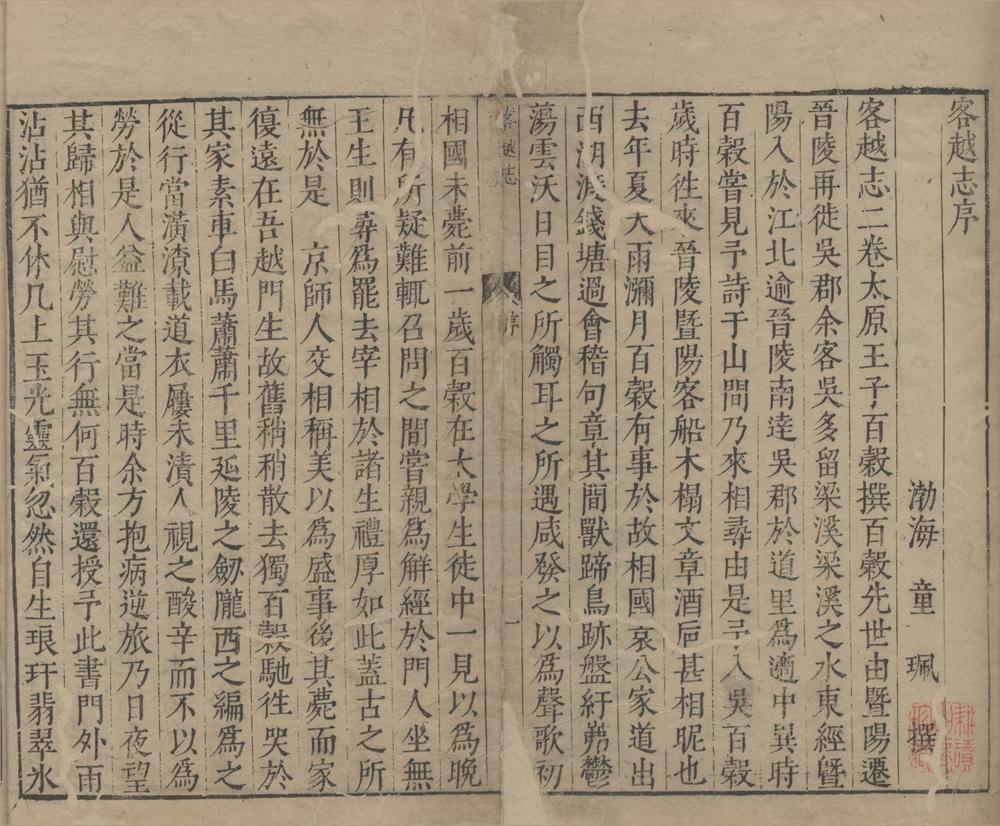 客越志序
渤海童珮撰
客越志二卷太原王子百穀撰百穀先世由暨陽遷
晉陵再徙吳郡余客吳多留梁溪梁溪之水東經暨
陽入於江北逾晉陵南達吳郡於道里爲適中異時
百穀嘗見予詩于山間乃來相尋由是予入吳百穀
歲時徃來晉陵暨陽客船木榻文章酒卮甚相昵也
去年夏大雨瀰月百穀有事於故相國袁公家道出
西湖渡錢塘過會稽句章其間獸蹄鳥跡盤紆岪鬱
蕩雲沃日目之所觸耳之所遇咸發之以爲聲歌初
客越志
序
一
相國未薨前一歲百穀在太學生徒中一見以爲晚
凡有所疑難輒召問之間嘗親爲解經於門人坐無
王生則尋爲罷去宰相於諸生禮厚如此蓋古之所
無於是 京師人交相稱美以爲盛事後其薨而家
復遠在吾越門生故舊稍稍散去獨百穀馳徃哭於
其家素車白馬蕭蕭千里延陵之劒隴西之編爲之
從行當潢潦載道衣屨未漬人視之酸辛而不以爲
勞於是人益難之當是時余方抱病逆旅乃日夜望
其歸相與慰勞其行無何百穀還授予此書門外雨
沾沾猶不休几上玉光靈氣忽然自生琅玕翡翠氷